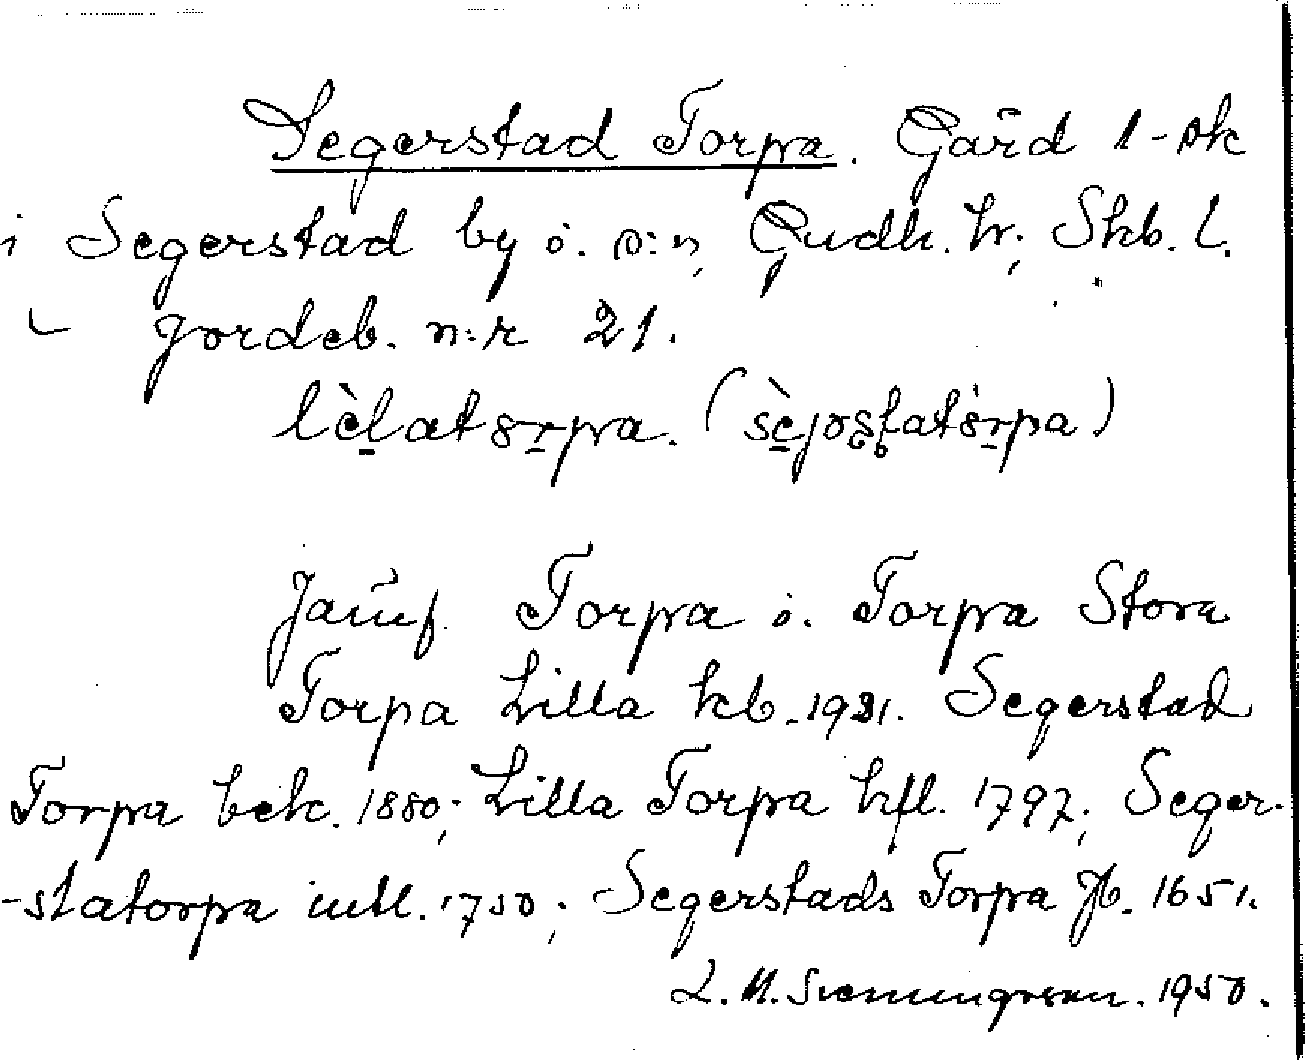 Segerstad Torpa. Gård 1-sk
i Segerstad by o. s:n, Gudh. hr; Skb. l.
Jordeb. n:r 21.
Jämf. Torpa o. Torpa Stora
Torpa Lilla kb. 1931. Segerstad
Torpa bek. 1880; Lilla Torpa hfl. 1797; Seger-
-statorpa intl. 1750; Segerstads Torpa Jb. 1651.
1950.